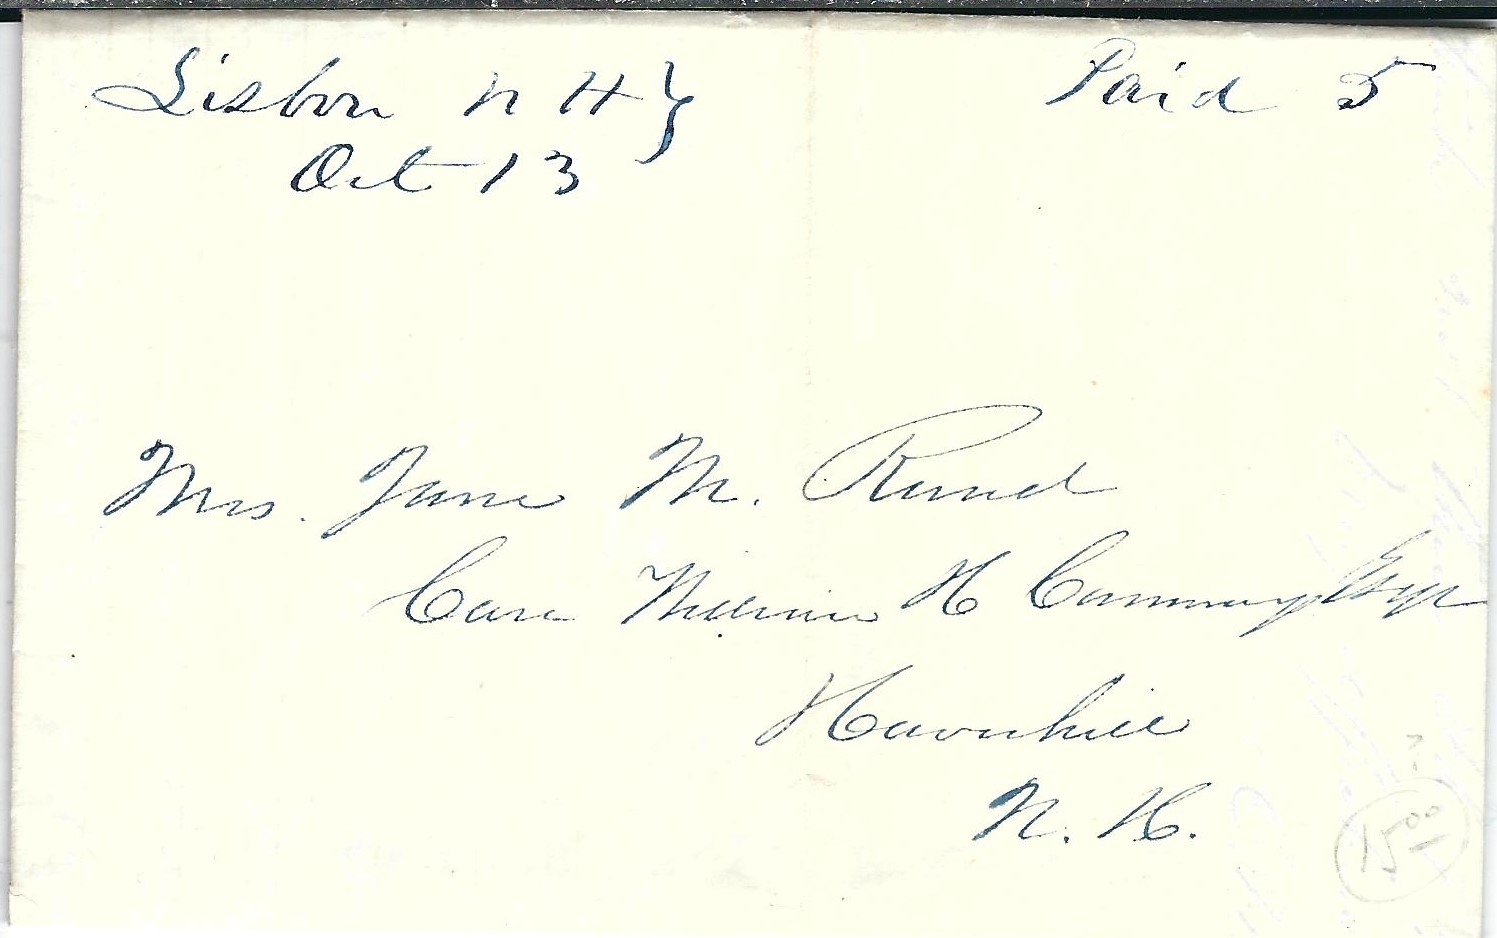 Lisbon N H } Paid 5
Oct 13
Mrs. Jane M. Rand
Care William H Cummings Esqr
Haverhill
N. H.
?
15 00